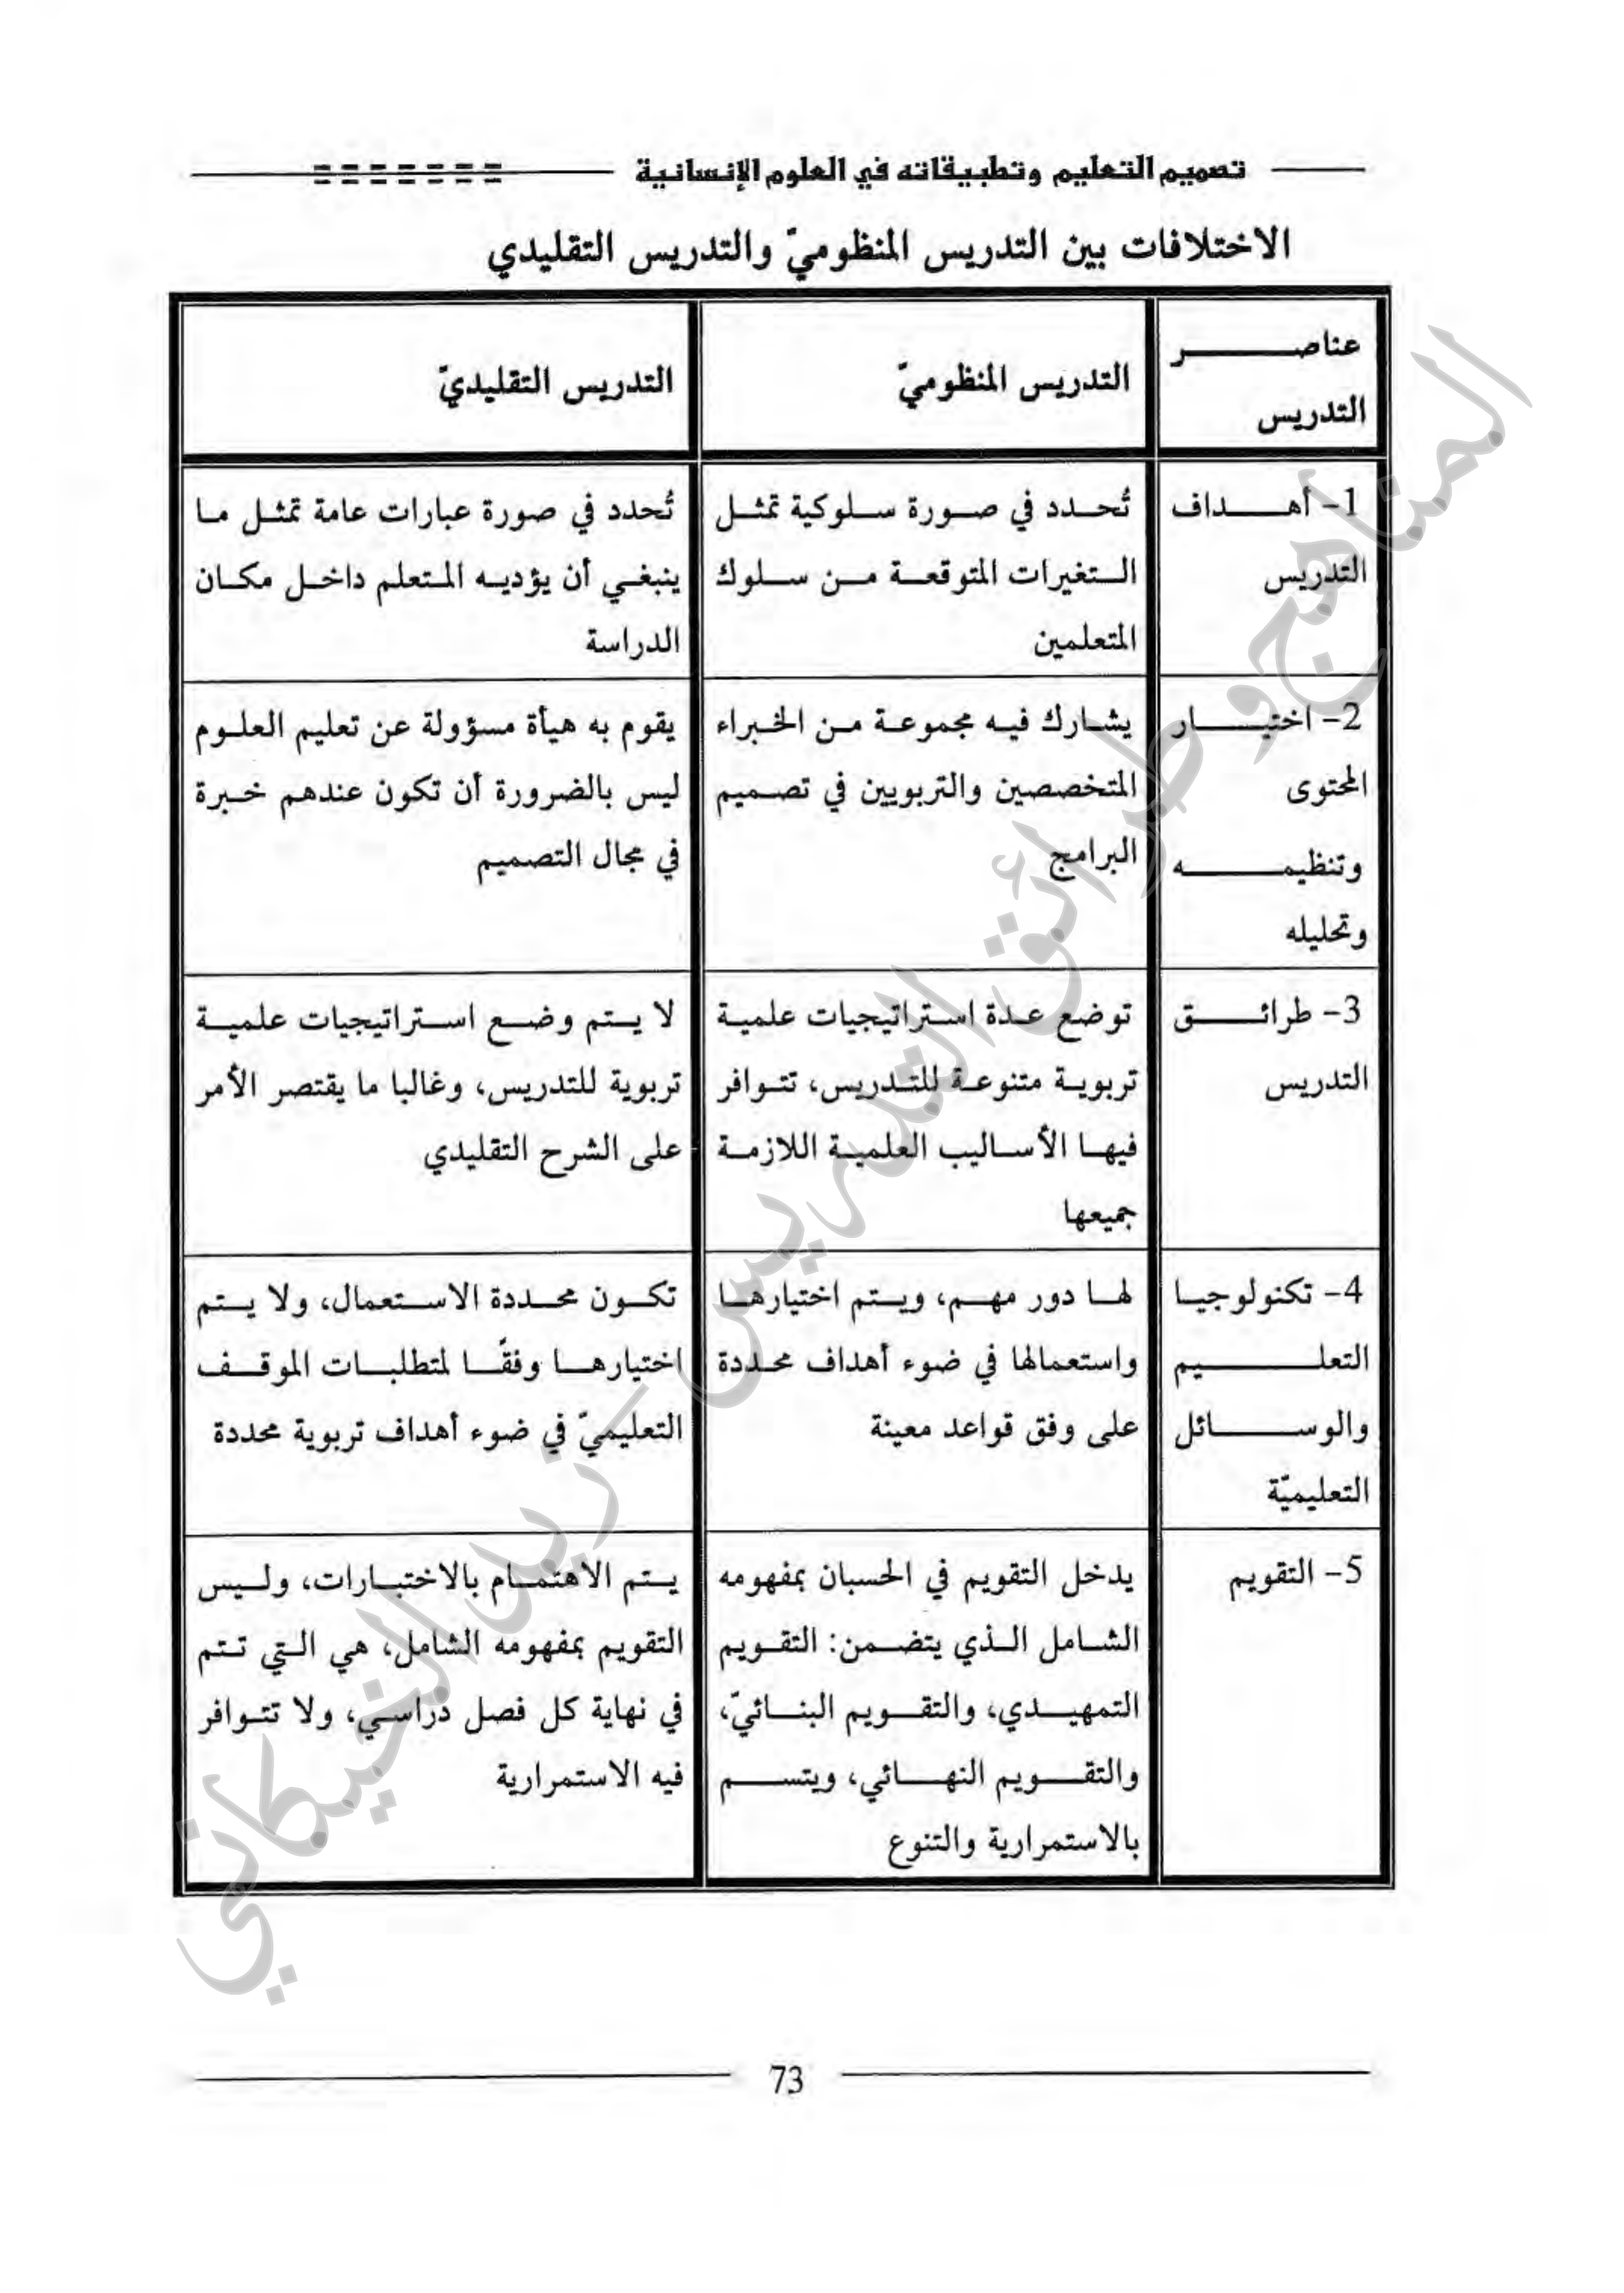 تصميم التعليم وتطبيقاته في العلوم الإنسانية
الاختلافات بين التدريس المنظوميّ والتدريس التقليدي
عناصر
التدريس
التدريس المنظوميّ
التدريس التقليديّ
1- أهداف
التدريس
تُحدد في صورة سلوكية تمثل
التغيرات المتوقعة من سلوك
المتعلمين
تُحدد في صورة عبارات عامة تمثل ما
ينبغي أن يؤديه المتعلم داخل مكان
الدراسة
2- اختيار
المحتوى
وتنظيمه
وتحليله
يشارك فيه مجموعة من الخبراء
المتخصصين والتربويين في تصميم
البرامج
يقوم به هيأة مسؤولة عن تعليم العلوم
ليس بالضرورة أن تكون عندهم خبرة
في مجال التصميم
3- طرائق
التدريس
توضع عدة استراتيجيات علمية
تربوية متنوعة للتدريس، تتوافر
فيها الأساليب العلمية اللازمة
جميعها
لا يتم وضع استراتيجيات علمية
تربوية للتدريس، وغالبا ما يقتصر الأمر
على الشرح التقليدي
4- تكنولوجيا
التعليم
والوسائل
التعليميّة
لها دور مهم، ويتم اختيارها
واستعمالها في ضوء أهداف محددة
على وفق قواعد معينة
تكون محددة الاستعمال، ولا يتم
اختيارها وفقًا لمتطلبات الموقف
التعليميّ في ضوء أهداف تربوية محددة
5- التقويم
يدخل التقويم في الحسبان بمفهومه
الشامل الذي يتضمن: التقويم
التمهيدي، والتقويم البنائيّ،
والتقويم النهائي، ويتسم
بالاستمرارية والتنوع
يتم الاهتمام بالاختبارات، وليس
التقويم بمفهومه الشامل، هي التي تتم
في نهاية كل فصل دراسي، ولا تتوافر
فيه الاستمرارية
المناهج وطرائق التدريس - زيد الخيكاني
73